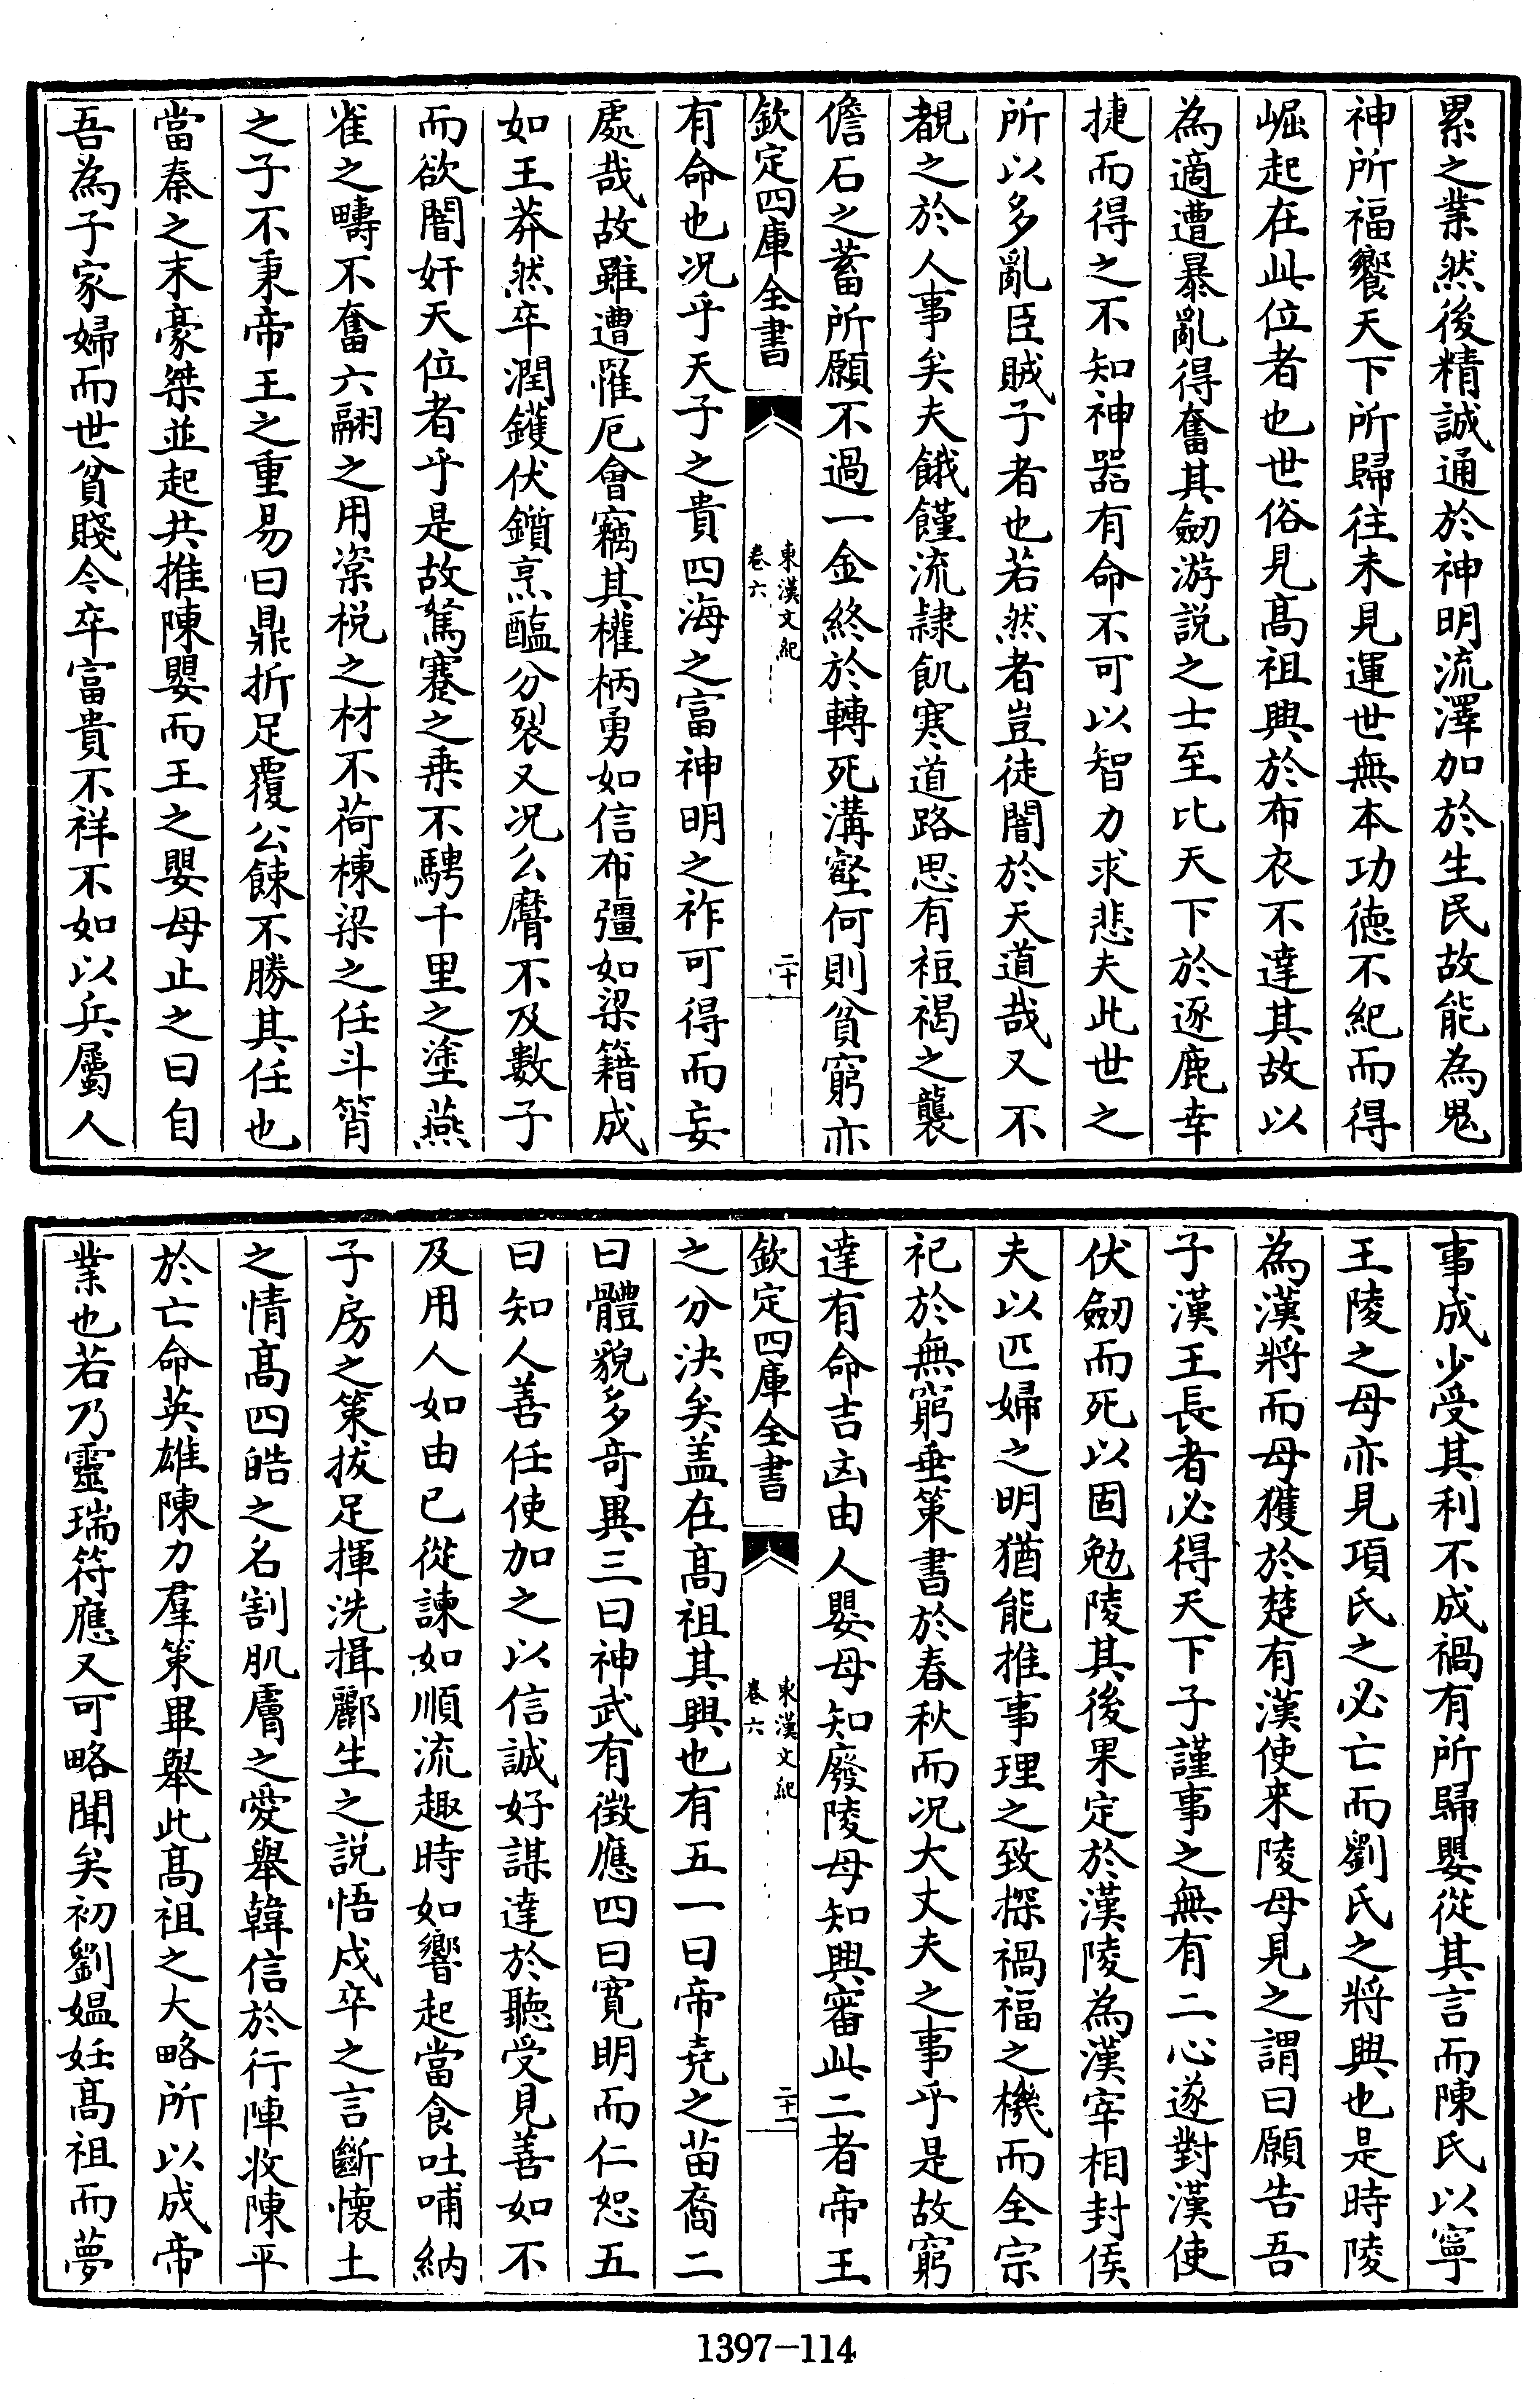 累之業然後精誠通於神明流澤加於生民故能為鬼
神所福饗天下所歸往未見運世無本功德不紀而得
崛起在此位者也世俗見髙祖興於布衣不達其故以
為適遭暴亂得奮其劒游說之士至比天下於逐鹿幸
捷而得之不知神器有命不可以智力求悲夫此世之
所以多亂臣賊子者也若然者豈徒闇於天道哉又不
覩之於人事矣夫餓饉流隷飢寒道路思有裋褐之襲
儋石之蓄所願不過一金終於轉死溝壑何則貧窮亦
欽定四庫全書
東漢文紀
卷六
二十
有命也况乎天子之貴四海之富神明之祚可得而妄
處哉故雖遭罹厄會竊其權柄勇如信布彊如梁籍成
如王莽然卒潤鑊伏鑕烹醢分裂又况么麿不及數子
而欲闇奸天位者乎是故駑蹇之乗不騁千里之塗燕
雀之疇不奮六翮之用楶梲之材不荷棟梁之任斗筲
之子不秉帝王之重易曰鼎折足覆公餗不勝其任也
當秦之末豪桀並起共推陳嬰而王之嬰母止之曰自
吾為子家婦而世貧賤今卒富貴不祥不如以兵屬人
事成少受其利不成禍有所歸嬰從其言而陳氏以寧
王陵之母亦見項氏之必亡而劉氏之將興也是時陵
為漢將而母獲於楚有漢使来陵母見之謂曰願告吾
子漢王長者必得天下子謹事之無有二心遂對漢使
伏劒而死以固勉陵其後果定於漢陵為漢宰相封侯
夫以匹婦之明猶能推事理之致探禍福之機而全宗
祀於無窮垂策書於春秋而况大丈夫之事乎是故窮
達有命吉凶由人嬰母知廢陵母知興審此二者帝王
欽定四庫全書
東漢文紀
卷六
二十一
之分決矣盖在髙祖其興也有五一曰帝堯之苗裔二
曰體貌多竒異三曰神武有徴應四曰寛明而仁恕五
曰知人善任使加之以信誠好謀達於聽受見善如不
及用人如由已從諫如順流趣時如響起當食吐哺納
子房之策拔足揮洗揖酈生之說悟戍卒之言斷懷土
之情髙四皓之名割肌膚之愛舉韓信於行陣收陳平
於亡命英雄陳力羣策畢舉此髙祖之大略所以成帝
業也若乃靈瑞符應又可略聞矣初劉媪妊髙祖而夢
1397-114